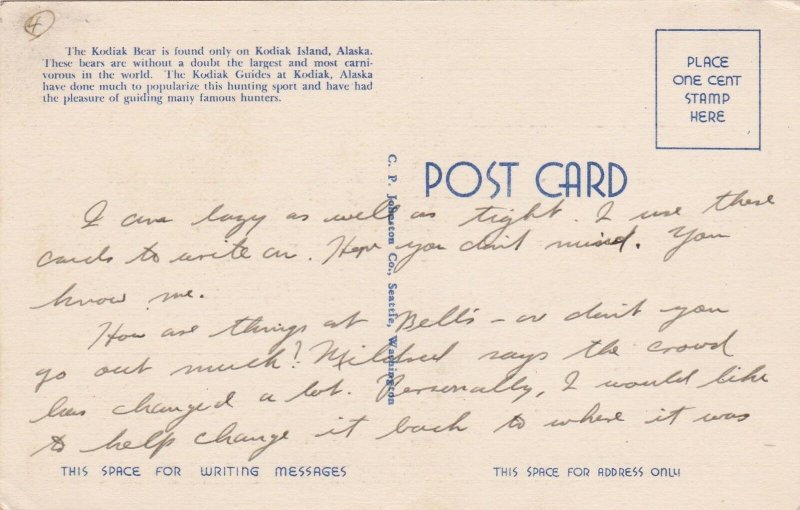 4
The Kodiak Bear is found only on Kodiak Island, Alaska.
These bears are without a doubt the largest and most carni-
vorous in the world. The Kodiak Guides at Kodiak, Alaska
have done much to popularize this hunting sport and have had
the pleasure of guiding many famous hunters.
PLACE
ONE CENT
STAMP
HERE
POST CARD
C. P. Johnston Co., Seattle, Washington
I am lazy as well as tight. I use these
cards to write on. Hope you don't mind. You
know me.
How are things at Bell's - or don't you
go out much? Mildred says the crowd
has changed a lot. Personally, I would like
to help change it back to where it was
THIS SPACE FOR WRITING MESSAGES
THIS SPACE FOR ADDRESS ONLY